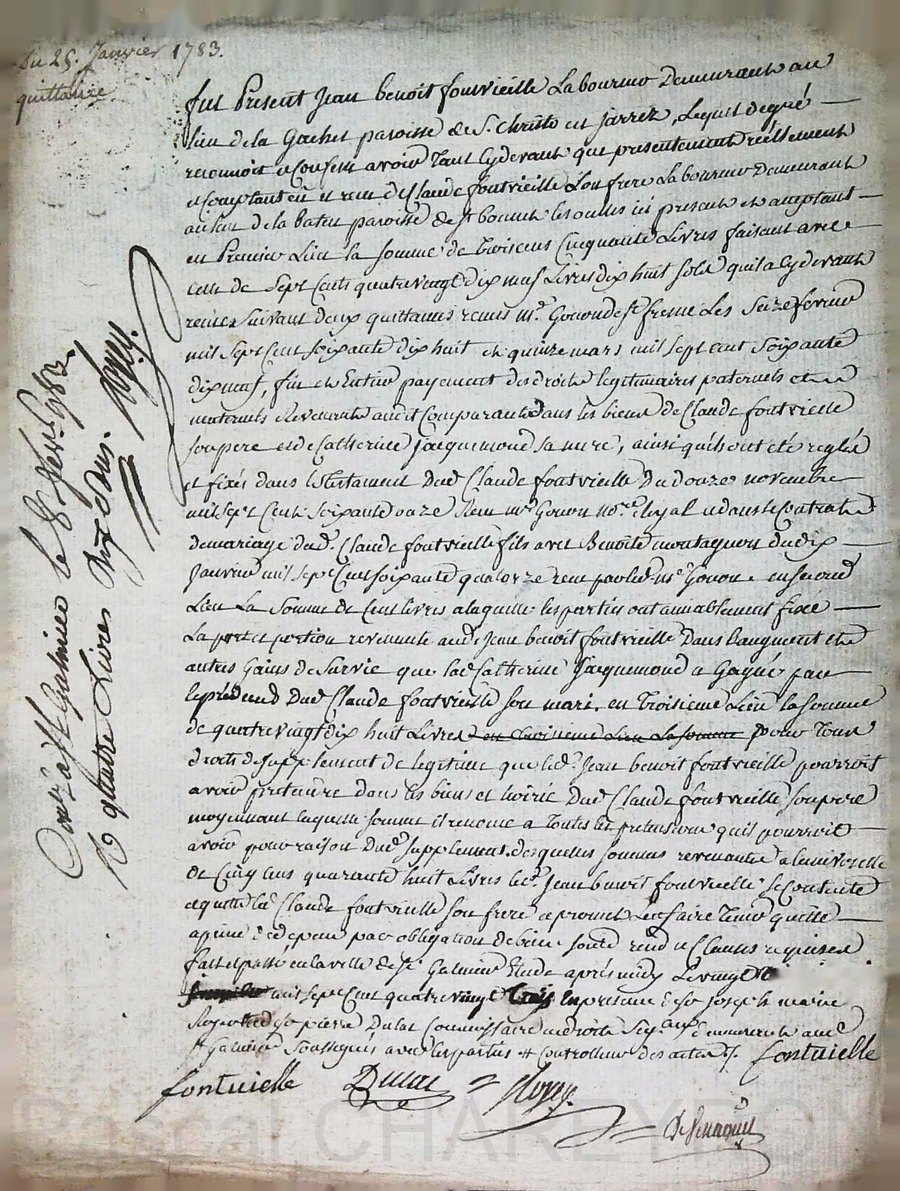 Du 25. Janvier 1783.
quittance
fut Present Jean benoit fontvieille Laboureur Demeurant au
lieu de la Gachet paroisse de St. Christo en Jarrez, Lequel de gré
reconnoit et Confesse avoir Tant cydevant que presentement réellement
et Comptant eu et recu de Claude fontvieille son frere Laboureur Demeurant
au lieu de la paroisse de St bonnet les oulles ici present et acceptant
en Premier Lieu la somme de Troiscens Cinquante Livres faisant avec
celle de Sept Cents quatrevingt dix neuf Livres dix huit sols quil a cydevant
recues suivant deux quittances recues Me. les Seize fevrier
mil Sept Cent soixante dix huit et quinze mars mil sept cent soixante
dix neuf, fin et Entier payement des droits legitimaires paternels et
maternels Revenants audit Comparant dans les biens de Claude fontvieille
son pere et de Catherine Jacquemond sa mere, ainsi qu'ils ont été reglés
et fixés dans le testament Dud. Claude fontvieille Du douze novembre
mil Sept Cent Soixante onze Recu Me Gonon nore. Royal et dans le Contrat
de mariage dud. Claude fontvieille fils avec Benoite du dix
Janvier mil Sept Cent soixante quatorze recu par led. me Gonon. en second
Lieu La Somme de Cent livres a laquelle les parties ont amiablement fixée
La part et portion revenante aud. Jean benoit fontvieille Dans l'augment et
autres Gains de Survie que lad. Catherine Jacquemond a Gagné par
le prédeces Dud. Claude fontvieille son mari. en Troisieme Lieu la somme
de quatrevingt dix huit Livres en Troisieme Lieu La somme pour Tous
droits de supplement de legitime que led. Jean benoit fontvieille pourroit
avoir pretendre dans les biens et hoirie Dud. Claude fontvieille son pere
moyennant laquelle somme il renonce a Toutes les pretensions qu'il pourroit
avoir pour raison Dud. supplement. desquelles sommes revenantes a l'universelle
de Cinq Cens quarante huit Livres led. Jean benoit fontvieille se Contente
et quitte led. Claude fontvieille son frere et promet Len faire Tenir quitte
a peine par obligation de biens rend et Clauses requises
fait et passé en la ville de St. Galmier Etude après midy Le vingt
mil sept Cent quatre vingt Trois en presence de Joseph marie
Royer et de Sr pierre Dulac Commissaire en droits Seigaux. demeurants aud.
St Galmier Soussignés avec les parties et Controlleur des actes /. fontvielle
fontvielle Dulac Royer
Contr a St Galmier le 8 fevr. 1783.
R quatre Livres dix sols. Royer
Pascal CHAREYRON